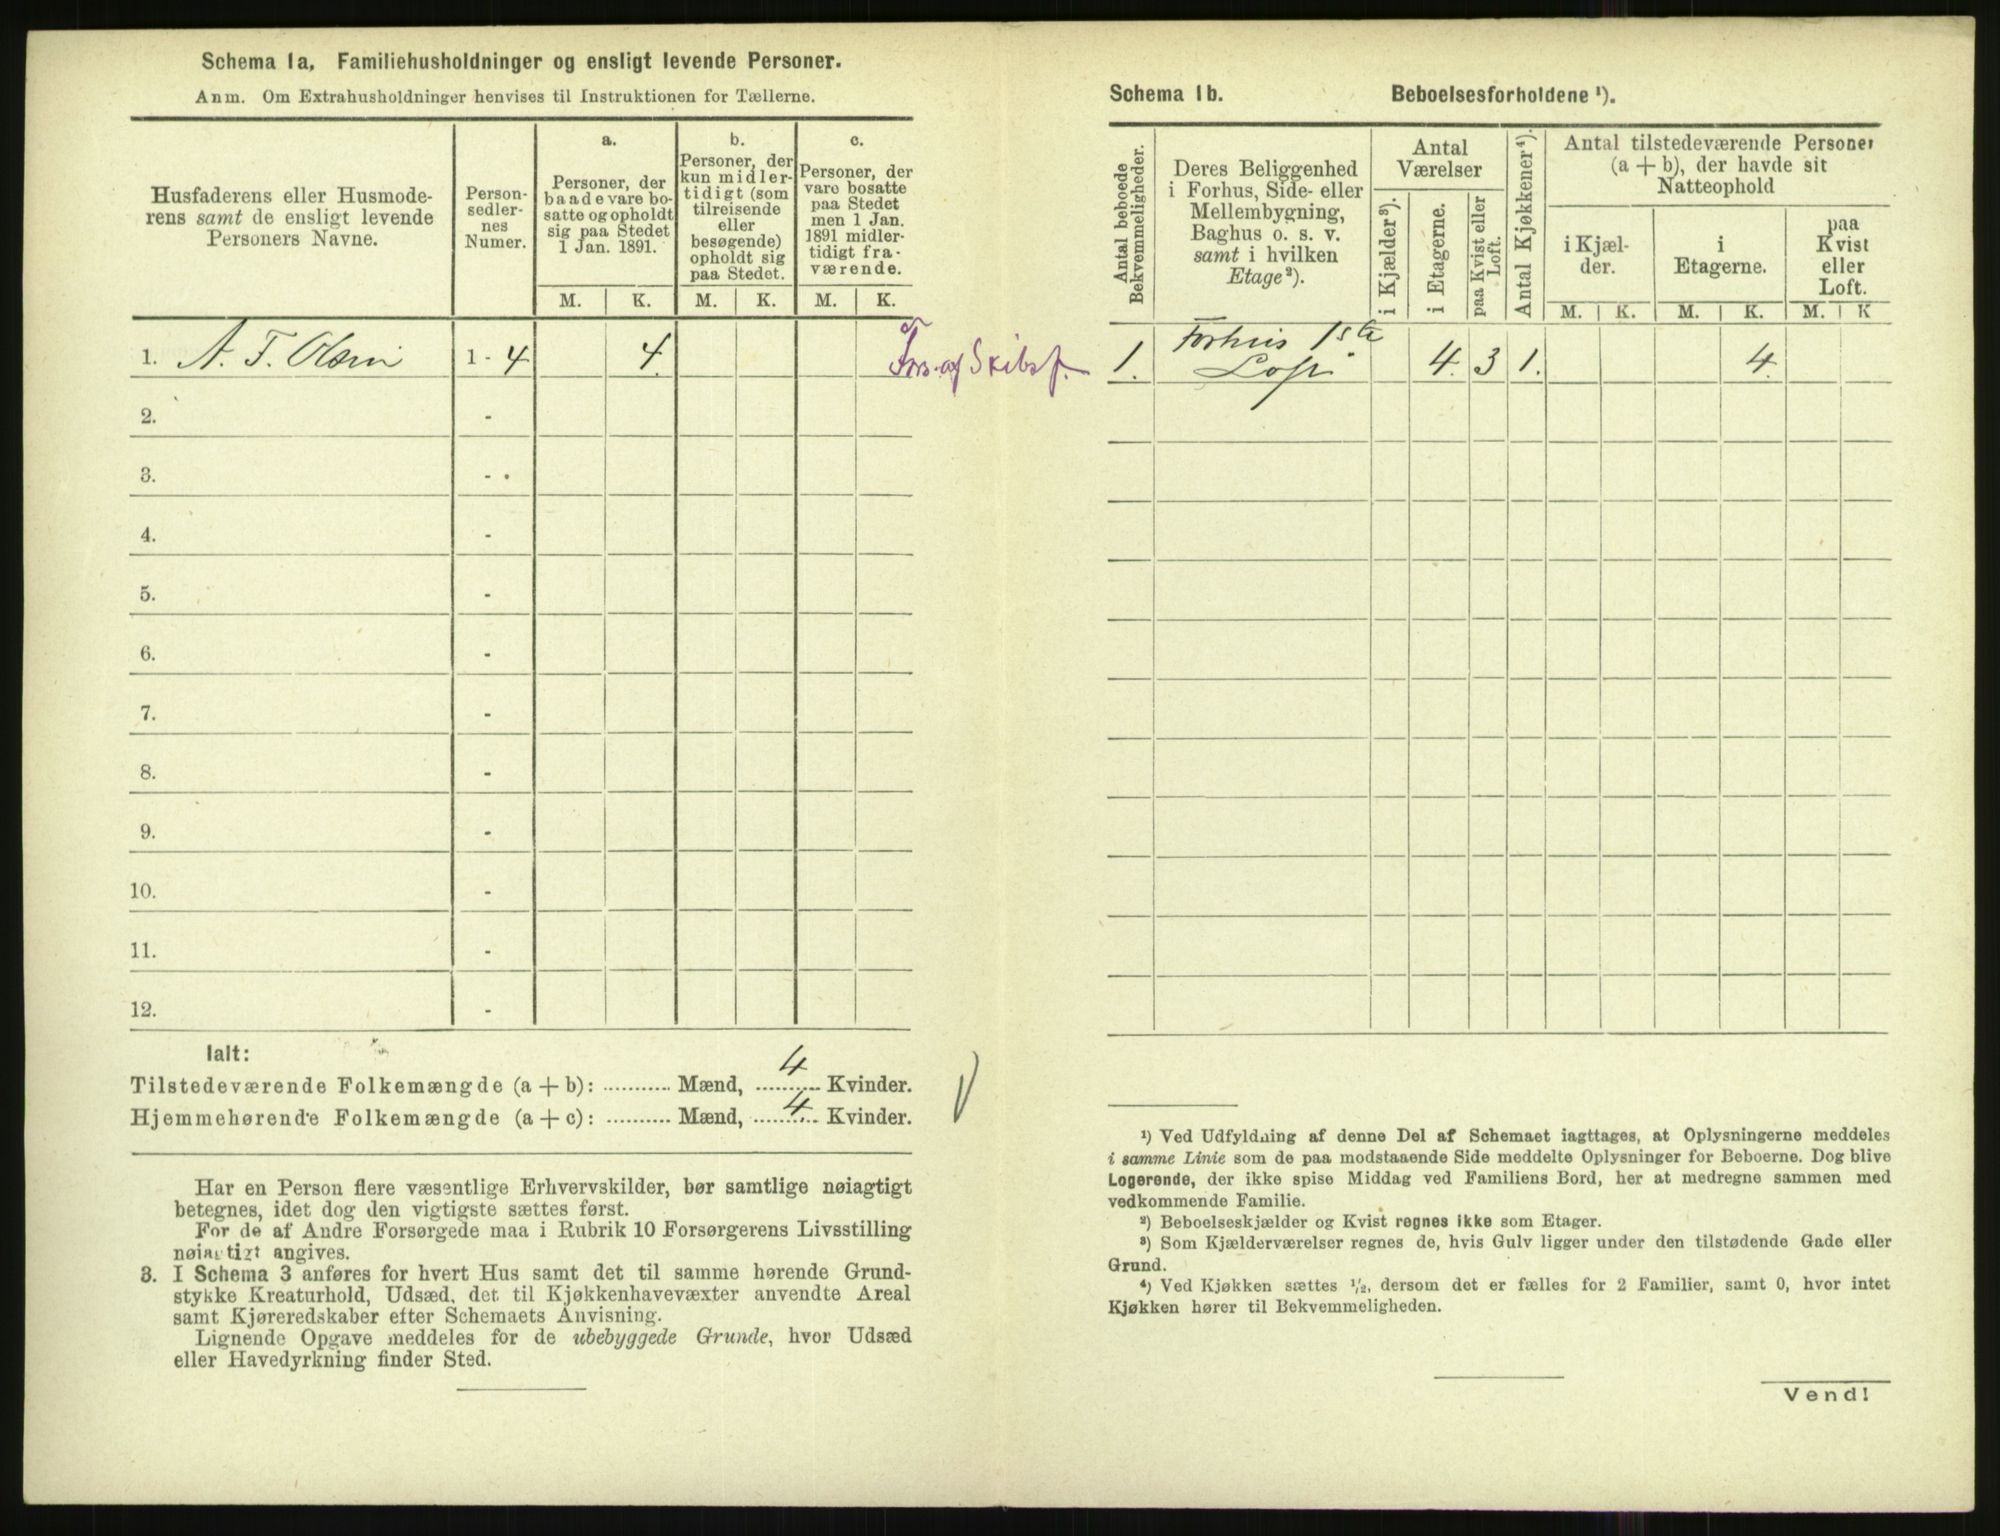 Schema 1a. Familiehusholdninger og ensligt levende Personer.
Anm. Om Extrahusholdninger henvises til Instruktionen for Tællerne.
Husfaderens eller Husmode-
rens samt de ensligt levende
Personers Navne.
Person-
sedler-
nes
Numer.
a.
Personer, der
baade vare bo-
satte og opholdt
sig paa Stedet
1 Jan. 1891.
b.
Personer, der
kun midler-
tidigt (som
tilreisende
eller
besøgende)
opholdt sig
paa Stedet.
c.
Personer, der
vare bosatte
paa Stedet
men 1 Jan.
1891 midler-
tidigt fra-
værende.
M. K. M. K. M. K.
1. A. F. Olsen 1 - 4 4. Fors. af Skibsf.
2. -
3. -
4. -
5. -
6. -
7. -
8. -
9. -
10. -
11. -
12. -
Ialt:
Tilstedeværende Folkemængde (a + b): ........... Mænd, 4 Kvinder.
Hjemmehørende Folkemængde (a + c): ........... Mænd, 4. Kvinder.
Har en Person flere væsentlige Erhvervskilder, bør samtlige nøiagtigt
betegnes, idet dog den vigtigste sættes først.
For de af Andre Forsørgede maa i Rubrik 10 Forsørgerens Livsstilling
nøiagtigt angives.
3. I Schema 3 anføres for hvert Hus samt det til samme hørende Grund-
stykke Kreaturhold, Udsæd, det til Kjøkkenhavevæxter anvendte Areal
samt Kjøreredskaber efter Schemaets Anvisning.
Lignende Opgave meddeles for de ubebyggede Grunde, hvor Udsæd
eller Havedyrkning finder Sted.
Schema 1b. Beboelsesforholdene ¹).
Antal beboede
Bekvemmeligheder.
Deres Beliggenhed
i Forhus, Side- eller
Mellembygning,
Baghus o. s. v.
samt i hvilken
Etage²).
Antal
Værelser
i Kjælder³).
i Etagerne.
paa Kvist eller
Loft.
Antal Kjøkkener⁴).
Antal tilstedeværende Personer
(a + b), der havde sit
Natteophold
i Kjæl-
der.
i
Etagerne.
paa
Kvist
eller
Loft.
M. K. M. K. M. K
1. Forhus 1ste
4. 3 1. 4.
¹) Ved Udfyldning af denne Del af Schemaet iagttages, at Oplysningerne meddeles
i samme Linie som de paa modstaaende Side meddelte Oplysninger for Beboerne. Dog blive
Logerende, der ikke spise Middag ved Familiens Bord, her at medregne sammen med
vedkommende Familie.
²) Beboelseskjælder og Kvist regnes ikke som Etager.
³) Som Kjælderværelser regnes de, hvis Gulv ligger under den tilstødende Gade eller
Grund.
⁴) Ved Kjøkken sættes ¹/₂, dersom det er fælles for 2 Familier, samt 0, hvor intet
Kjøkken hører til Bekvemmeligheden.
Vend!